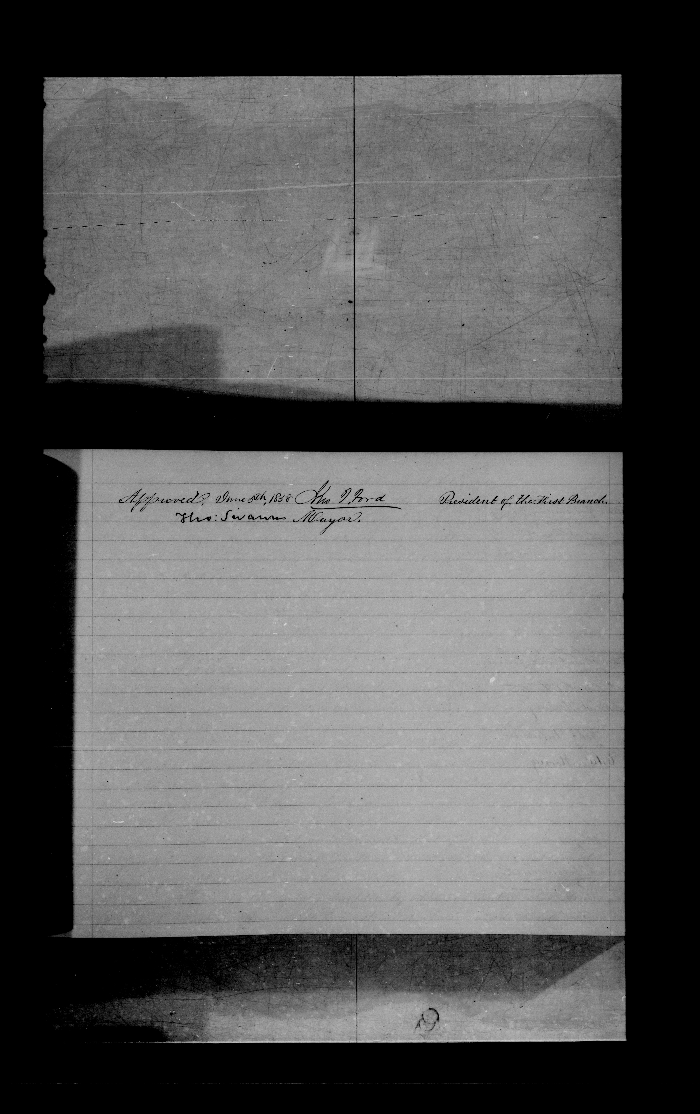 Approved, June 8th, 1858 Jno T Ford President of the First Branch.
Tho: Swann Mayor.